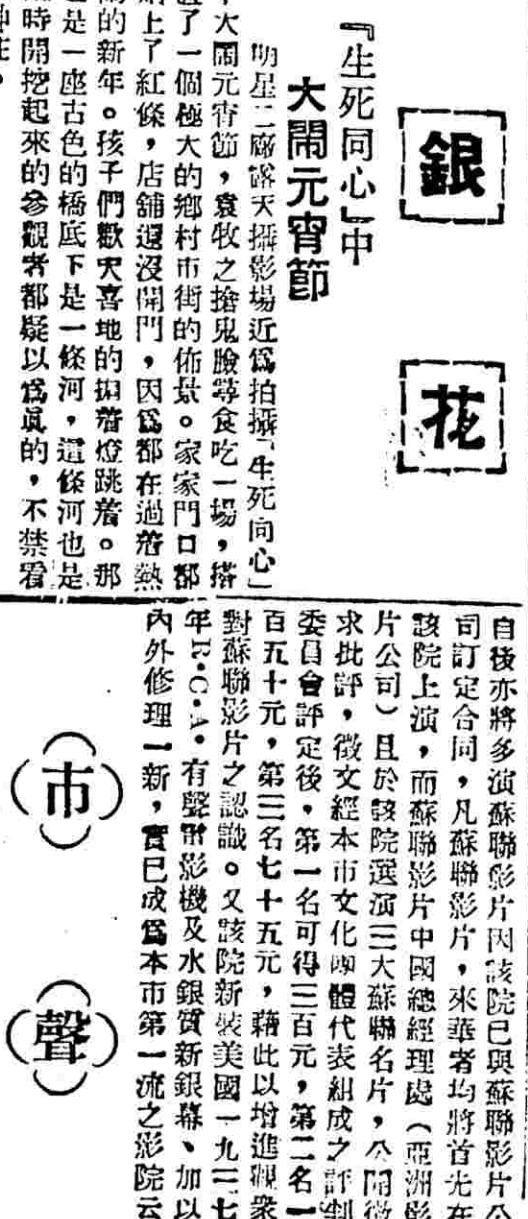 銀花
『生死同心』中
大閙元宵節
明星二廠露天攝影場近爲拍攝「生死同心」
中大閙元宵節,袁牧之搶鬼臉等食吃一場,搭
置了一個極大的鄉村市街的佈景。家家門口都
貼上了紅條,店舖還沒開門,因爲都在過着熱
閙的新年。孩子們歡天喜地的捐着燈跳着。那
邊是一座古色的橋底下是一條河,這條河也是
時開挖起來的參觀者都疑以爲眞的,不禁看
自後亦將多演蘇聯影片因該院已與蘇聯影片公
司訂定合同,凡蘇聯影片,來華者均將首先在
該院上演,而蘇聯影片中國總經理處(亞洲影
片公司)且於該院選演三大蘇聯名片,公開徵
求批評,徵文經本市文化團體代表組成之評判
委員會評定後,第一名可得三百元,第二名一
百五十元,第三名七十五元,藉此以增進觀衆
對蘇聯影片之認識。又該院新裝美國一九三七
年R.C.A.有聲電影機及水銀質新銀幕、加以
內外修理一新,實已成爲本市第一流之影院云
市聲